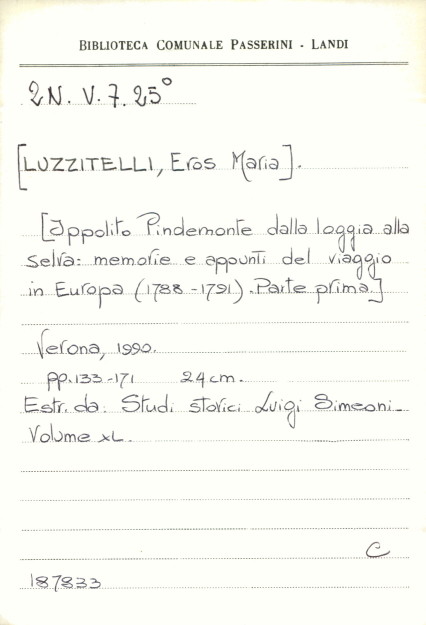 BIBLIOTECA COMUNALE PASSERINI - LANDI
2N. V. 7. 25°
[LUZZITELLI, Eros Maria].
[Ippolito Pindemonte dalla loggia alla
selva: memorie e appunti del viaggio
in Europa (1788-1791). Parte prima.]
Verona, 1990.
pp. 133-171 24 cm.
Estr. da: Studi storici Luigi Simeoni.
Volume XL.
C
187833